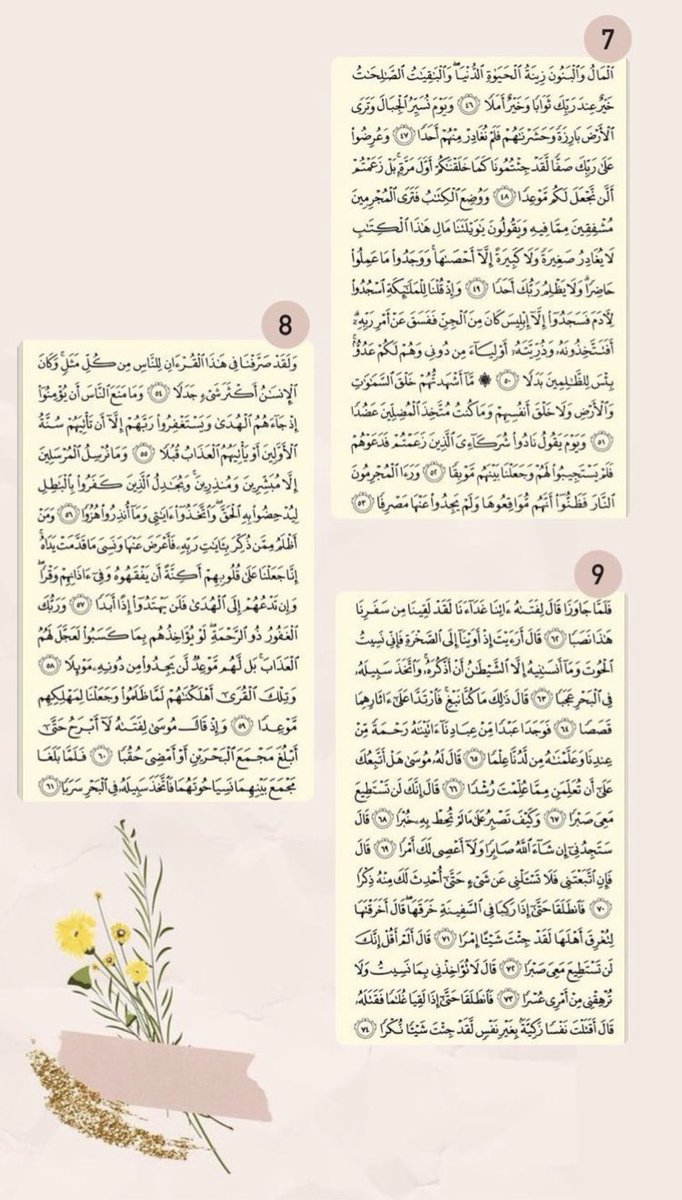 7
ٱلۡمَالُ وَٱلۡبَنُونَ زِينَةُ ٱلۡحَيَوٰةِ ٱلدُّنۡيَاۖ وَٱلۡبَٰقِيَٰتُ ٱلصَّٰلِحَٰتُ
خَيۡرٌ عِندَ رَبِّكَ ثَوَابٗا وَخَيۡرٌ أَمَلٗا ٤٦ وَيَوۡمَ نُسَيِّرُ ٱلۡجِبَالَ وَتَرَى
ٱلۡأَرۡضَ بَارِزَةٗ وَحَشَرۡنَٰهُمۡ فَلَمۡ نُغَادِرۡ مِنۡهُمۡ أَحَدٗا ٤٧ وَعُرِضُواْ
عَلَىٰ رَبِّكَ صَفّٗا لَّقَدۡ جِئۡتُمُونَا كَمَا خَلَقۡنَٰكُمۡ أَوَّلَ مَرَّةِۭۚ بَلۡ زَعَمۡتُمۡ
أَلَّن نَّجۡعَلَ لَكُم مَّوۡعِدٗا ٤٨ وَوُضِعَ ٱلۡكِتَٰبُ فَتَرَى ٱلۡمُجۡرِمِينَ
مُشۡفِقِينَ مِمَّا فِيهِ وَيَقُولُونَ يَٰوَيۡلَتَنَا مَالِ هَٰذَا ٱلۡكِتَٰبِ
لَا يُغَادِرُ صَغِيرَةٗ وَلَا كَبِيرَةً إِلَّآ أَحۡصَىٰهَاۚ وَوَجَدُواْ مَا عَمِلُواْ
حَاضِرٗاۗ وَلَا يَظۡلِمُ رَبُّكَ أَحَدٗا ٤٩ وَإِذۡ قُلۡنَا لِلۡمَلَٰٓئِكَةِ ٱسۡجُدُواْ
لِأٓدَمَ فَسَجَدُوٓاْ إِلَّآ إِبۡلِيسَ كَانَ مِنَ ٱلۡجِنِّ فَفَسَقَ عَنۡ أَمۡرِ رَبِّهِۦٓۗ
أَفَتَتَّخِذُونَهُۥ وَذُرِّيَّتَهُۥٓ أَوۡلِيَآءَ مِن دُونِي وَهُمۡ لَكُمۡ عَدُوُّۢۚ
بِئۡسَ لِلظَّٰلِمِينَ بَدَلٗا ٥٠ ۞ مَّآ أَشۡهَدتُّهُمۡ خَلۡقَ ٱلسَّمَٰوَٰتِ
وَٱلۡأَرۡضِ وَلَا خَلۡقَ أَنفُسِهِمۡ وَمَا كُنتُ مُتَّخِذَ ٱلۡمُضِلِّينَ عَضُدٗا
٥١ وَيَوۡمَ يَقُولُ نَادُواْ شُرَكَآءِيَ ٱلَّذِينَ زَعَمۡتُمۡ فَدَعَوۡهُمۡ
فَلَمۡ يَسۡتَجِيبُواْ لَهُمۡ وَجَعَلۡنَا بَيۡنَهُم مَّوۡبِقٗا ٥٢ وَرَءَا ٱلۡمُجۡرِمُونَ
ٱلنَّارَ فَظَنُّوٓاْ أَنَّهُم مُّوَاقِعُوهَا وَلَمۡ يَجِدُواْ عَنۡهَا مَصۡرِفٗا ٥٣
8
وَلَقَدۡ صَرَّفۡنَا فِي هَٰذَا ٱلۡقُرۡءَانِ لِلنَّاسِ مِن كُلِّ مَثَلٖۚ وَكَانَ
ٱلۡإِنسَٰنُ أَكۡثَرَ شَيۡءٖ جَدَلٗا ٥٤ وَمَا مَنَعَ ٱلنَّاسَ أَن يُؤۡمِنُوٓاْ
إِذۡ جَآءَهُمُ ٱلۡهُدَىٰ وَيَسۡتَغۡفِرُواْ رَبَّهُمۡ إِلَّآ أَن تَأۡتِيَهُمۡ سُنَّةُ
ٱلۡأَوَّلِينَ أَوۡ يَأۡتِيَهُمُ ٱلۡعَذَابُ قُبُلٗا ٥٥ وَمَا نُرۡسِلُ ٱلۡمُرۡسَلِينَ
إِلَّا مُبَشِّرِينَ وَمُنذِرِينَۚ وَيُجَٰدِلُ ٱلَّذِينَ كَفَرُواْ بِٱلۡبَٰطِلِ
لِيُدۡحِضُواْ بِهِ ٱلۡحَقَّۖ وَٱتَّخَذُوٓاْ ءَايَٰتِي وَمَآ أُنذِرُواْ هُزُوٗا ٥٦ وَمَنۡ
أَظۡلَمُ مِمَّن ذُكِّرَ بِـَٔايَٰتِ رَبِّهِۦ فَأَعۡرَضَ عَنۡهَا وَنَسِيَ مَا قَدَّمَتۡ يَدَاهُۚ
إِنَّا جَعَلۡنَا عَلَىٰ قُلُوبِهِمۡ أَكِنَّةً أَن يَفۡقَهُوهُ وَفِيٓ ءَاذَانِهِمۡ وَقۡرٗاۖ
وَإِن تَدۡعُهُمۡ إِلَى ٱلۡهُدَىٰ فَلَن يَهۡتَدُوٓاْ إِذًا أَبَدٗا ٥٧ وَرَبُّكَ
ٱلۡغَفُورُ ذُو ٱلرَّحۡمَةِۖ لَوۡ يُؤَاخِذُهُم بِمَا كَسَبُواْ لَعَجَّلَ لَهُمُ
ٱلۡعَذَابَۚ بَل لَّهُم مَّوۡعِدٞ لَّن يَجِدُواْ مِن دُونِهِۦ مَوۡئِلٗا ٥٨
وَتِلۡكَ ٱلۡقُرَىٰٓ أَهۡلَكۡنَٰهُمۡ لَمَّا ظَلَمُواْ وَجَعَلۡنَا لِمَهۡلِكِهِم
مَّوۡعِدٗا ٥٩ وَإِذۡ قَالَ مُوسَىٰ لِفَتَىٰهُ لَآ أَبۡرَحُ حَتَّىٰٓ
أَبۡلُغَ مَجۡمَعَ ٱلۡبَحۡرَيۡنِ أَوۡ أَمۡضِيَ حُقُبٗا ٦٠ فَلَمَّا بَلَغَا
مَجۡمَعَ بَيۡنِهِمَا نَسِيَا حُوتَهُمَا فَٱتَّخَذَ سَبِيلَهُۥ فِي ٱلۡبَحۡرِ سَرَبٗا ٦١
9
فَلَمَّا جَاوَزَا قَالَ لِفَتَىٰهُ ءَاتِنَا غَدَآءَنَا لَقَدۡ لَقِينَا مِن سَفَرِنَا
هَٰذَا نَصَبٗا ٦٢ قَالَ أَرَءَيۡتَ إِذۡ أَوَيۡنَآ إِلَى ٱلصَّخۡرَةِ فَإِنِّي نَسِيتُ
ٱلۡحُوتَ وَمَآ أَنسَىٰنِيهُ إِلَّا ٱلشَّيۡطَٰنُ أَنۡ أَذۡكُرَهُۥۚ وَٱتَّخَذَ سَبِيلَهُۥ
فِي ٱلۡبَحۡرِ عَجَبٗا ٦٣ قَالَ ذَٰلِكَ مَا كُنَّا نَبۡغِۚ فَٱرۡتَدَّا عَلَىٰٓ ءَاثَارِهِمَا
قَصَصٗا ٦٤ فَوَجَدَا عَبۡدٗا مِّنۡ عِبَادِنَآ ءَاتَيۡنَٰهُ رَحۡمَةٗ مِّنۡ
عِندِنَا وَعَلَّمۡنَٰهُ مِن لَّدُنَّا عِلۡمٗا ٦٥ قَالَ لَهُۥ مُوسَىٰ هَلۡ أَتَّبِعُكَ
عَلَىٰٓ أَن تُعَلِّمَنِ مِمَّا عُلِّمۡتَ رُشۡدٗا ٦٦ قَالَ إِنَّكَ لَن تَسۡتَطِيعَ
مَعِيَ صَبۡرٗا ٦٧ وَكَيۡفَ تَصۡبِرُ عَلَىٰ مَا لَمۡ تُحِطۡ بِهِۦ خُبۡرٗا ٦٨ قَالَ
سَتَجِدُنِيٓ إِن شَآءَ ٱللَّهُ صَابِرٗا وَلَآ أَعۡصِي لَكَ أَمۡرٗا ٦٩ قَالَ
فَإِنِ ٱتَّبَعۡتَنِي فَلَا تَسۡـَٔلۡنِي عَن شَيۡءٍ حَتَّىٰٓ أُحۡدِثَ لَكَ مِنۡهُ ذِكۡرٗا
٧٠ فَٱنطَلَقَا حَتَّىٰٓ إِذَا رَكِبَا فِي ٱلسَّفِينَةِ خَرَقَهَاۖ قَالَ أَخَرَقۡتَهَا
لِتُغۡرِقَ أَهۡلَهَا لَقَدۡ جِئۡتَ شَيۡـًٔا إِمۡرٗا ٧١ قَالَ أَلَمۡ أَقُلۡ إِنَّكَ
لَن تَسۡتَطِيعَ مَعِيَ صَبۡرٗا ٧٢ قَالَ لَا تُؤَاخِذۡنِي بِمَا نَسِيتُ وَلَا
تُرۡهِقۡنِي مِنۡ أَمۡرِي عُسۡرٗا ٧٣ فَٱنطَلَقَا حَتَّىٰٓ إِذَا لَقِيَا غُلَٰمٗا فَقَتَلَهُۥ
قَالَ أَقَتَلۡتَ نَفۡسٗا زَكِيَّةَۢ بِغَيۡرِ نَفۡسٖ لَّقَدۡ جِئۡتَ شَيۡـٔٗا نُّكۡرٗا ٧٤